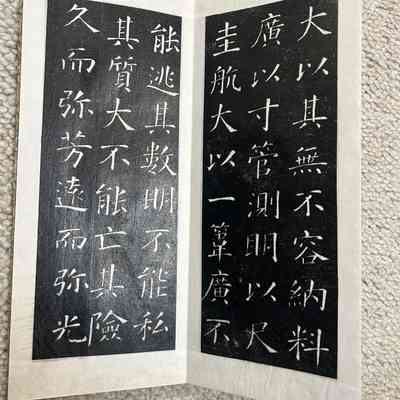 大以其無不容納料
廣以寸管測明以尺
圭航大以一葦廣不
能逃其數明不能私
其質大不能亡其險
久而弥芳遠而弥光